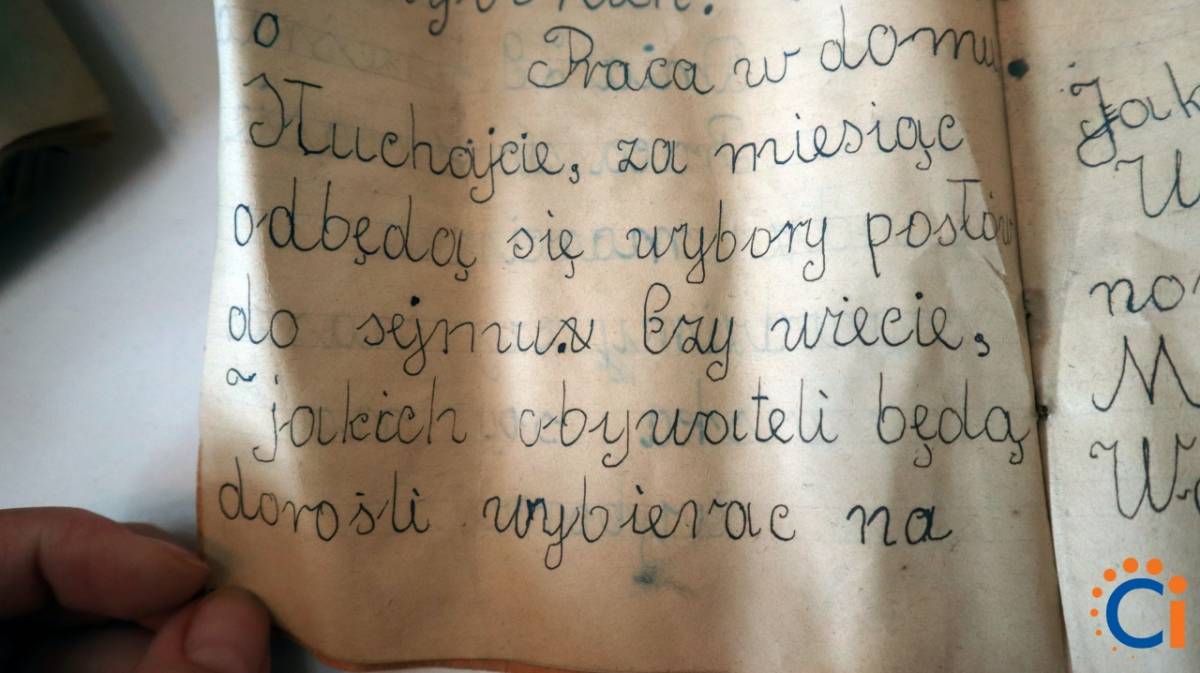 o
Praca w domu.
Słuchajcie, za miesiąc
odbędą się wybory posłów
do sejmu. Czy wiecie,
jakich obywateli będą
dorośli wybierac na
Jak
W
no
M
W
Ci